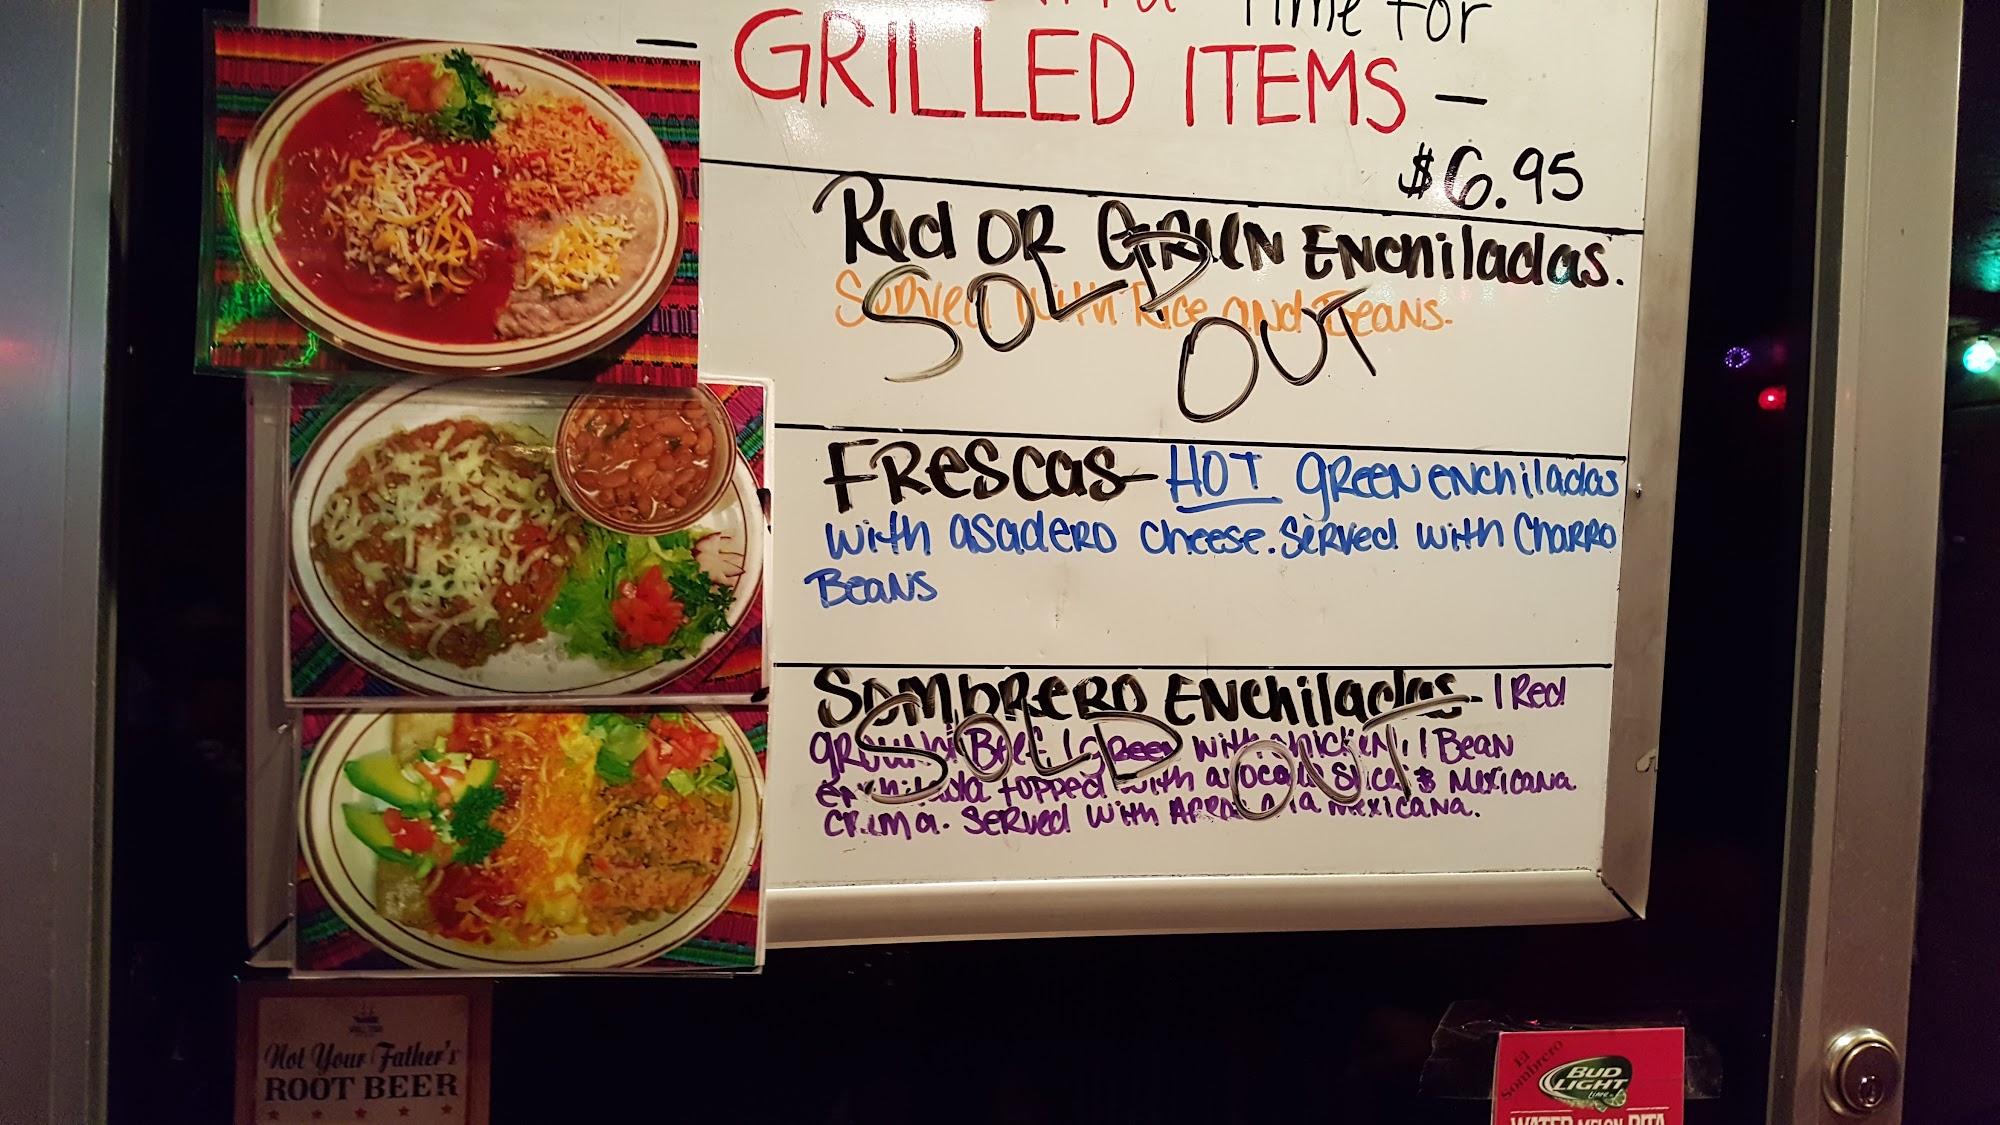 Time For
— GRILLED ITEMS —
$6.95
Red OR GREEN ENCHiladas.
Served with Rice and Beans.
SOLD OUT
FRESCAS- HOT GREEN ENCHiladas
with asadero cheese. Served with Charro
Beans
SOMBRERO ENCHiladas - 1 Red
GROUND Beef, 1 Green with chicken, 1 Bean
enchilada topped with avocado Slices Mexicana
Crema. Served with Arroz a la Mexicana.
SOLD OUT
Not Your Father's
ROOT BEER
El Sombrero
BUD LIGHT
Lime
WATERMELON RITA